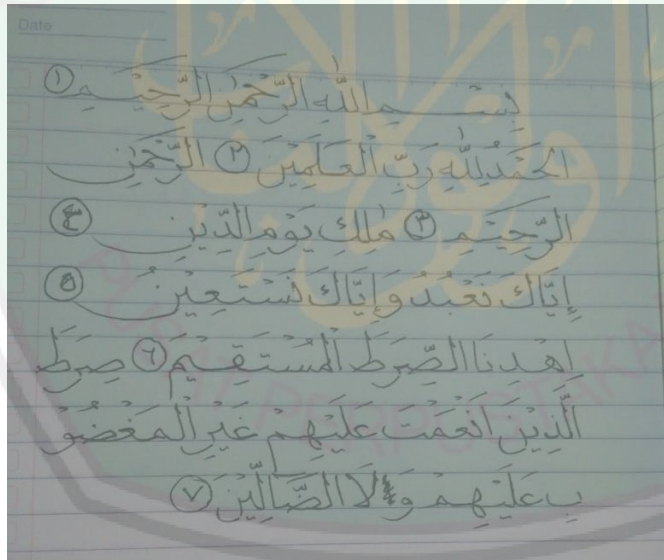 Date
بِسْــمِ اللّٰهِ الرَّحْمٰنِ الرَّحِيْــمِ ①
الحَمْدُ لِلّٰهِ رَبِّ الْعٰلَمِيْنَ ② الرَّحْمٰنِ
الرَّحِيْــمِ ③ مٰلِكِ يَوْمِ الدِّيْنِ ④
إِيَّاكَ نَعْبُدُ وَإِيَّاكَ نَسْتَعِيْنُ ⑤
اهْدِنَا الصِّرَطَ الْمُسْتَقِيْمَ ⑥ صِرَطَ
الَّذِيْنَ اَنْعَمْتَ عَلَيْهِمْ غَيْرِ الْمَغْضُوْ
بِ عَلَيْهِمْ وَلَا الضَّالِّيْنَ ⑦
PUSAT PERPUSTAKA